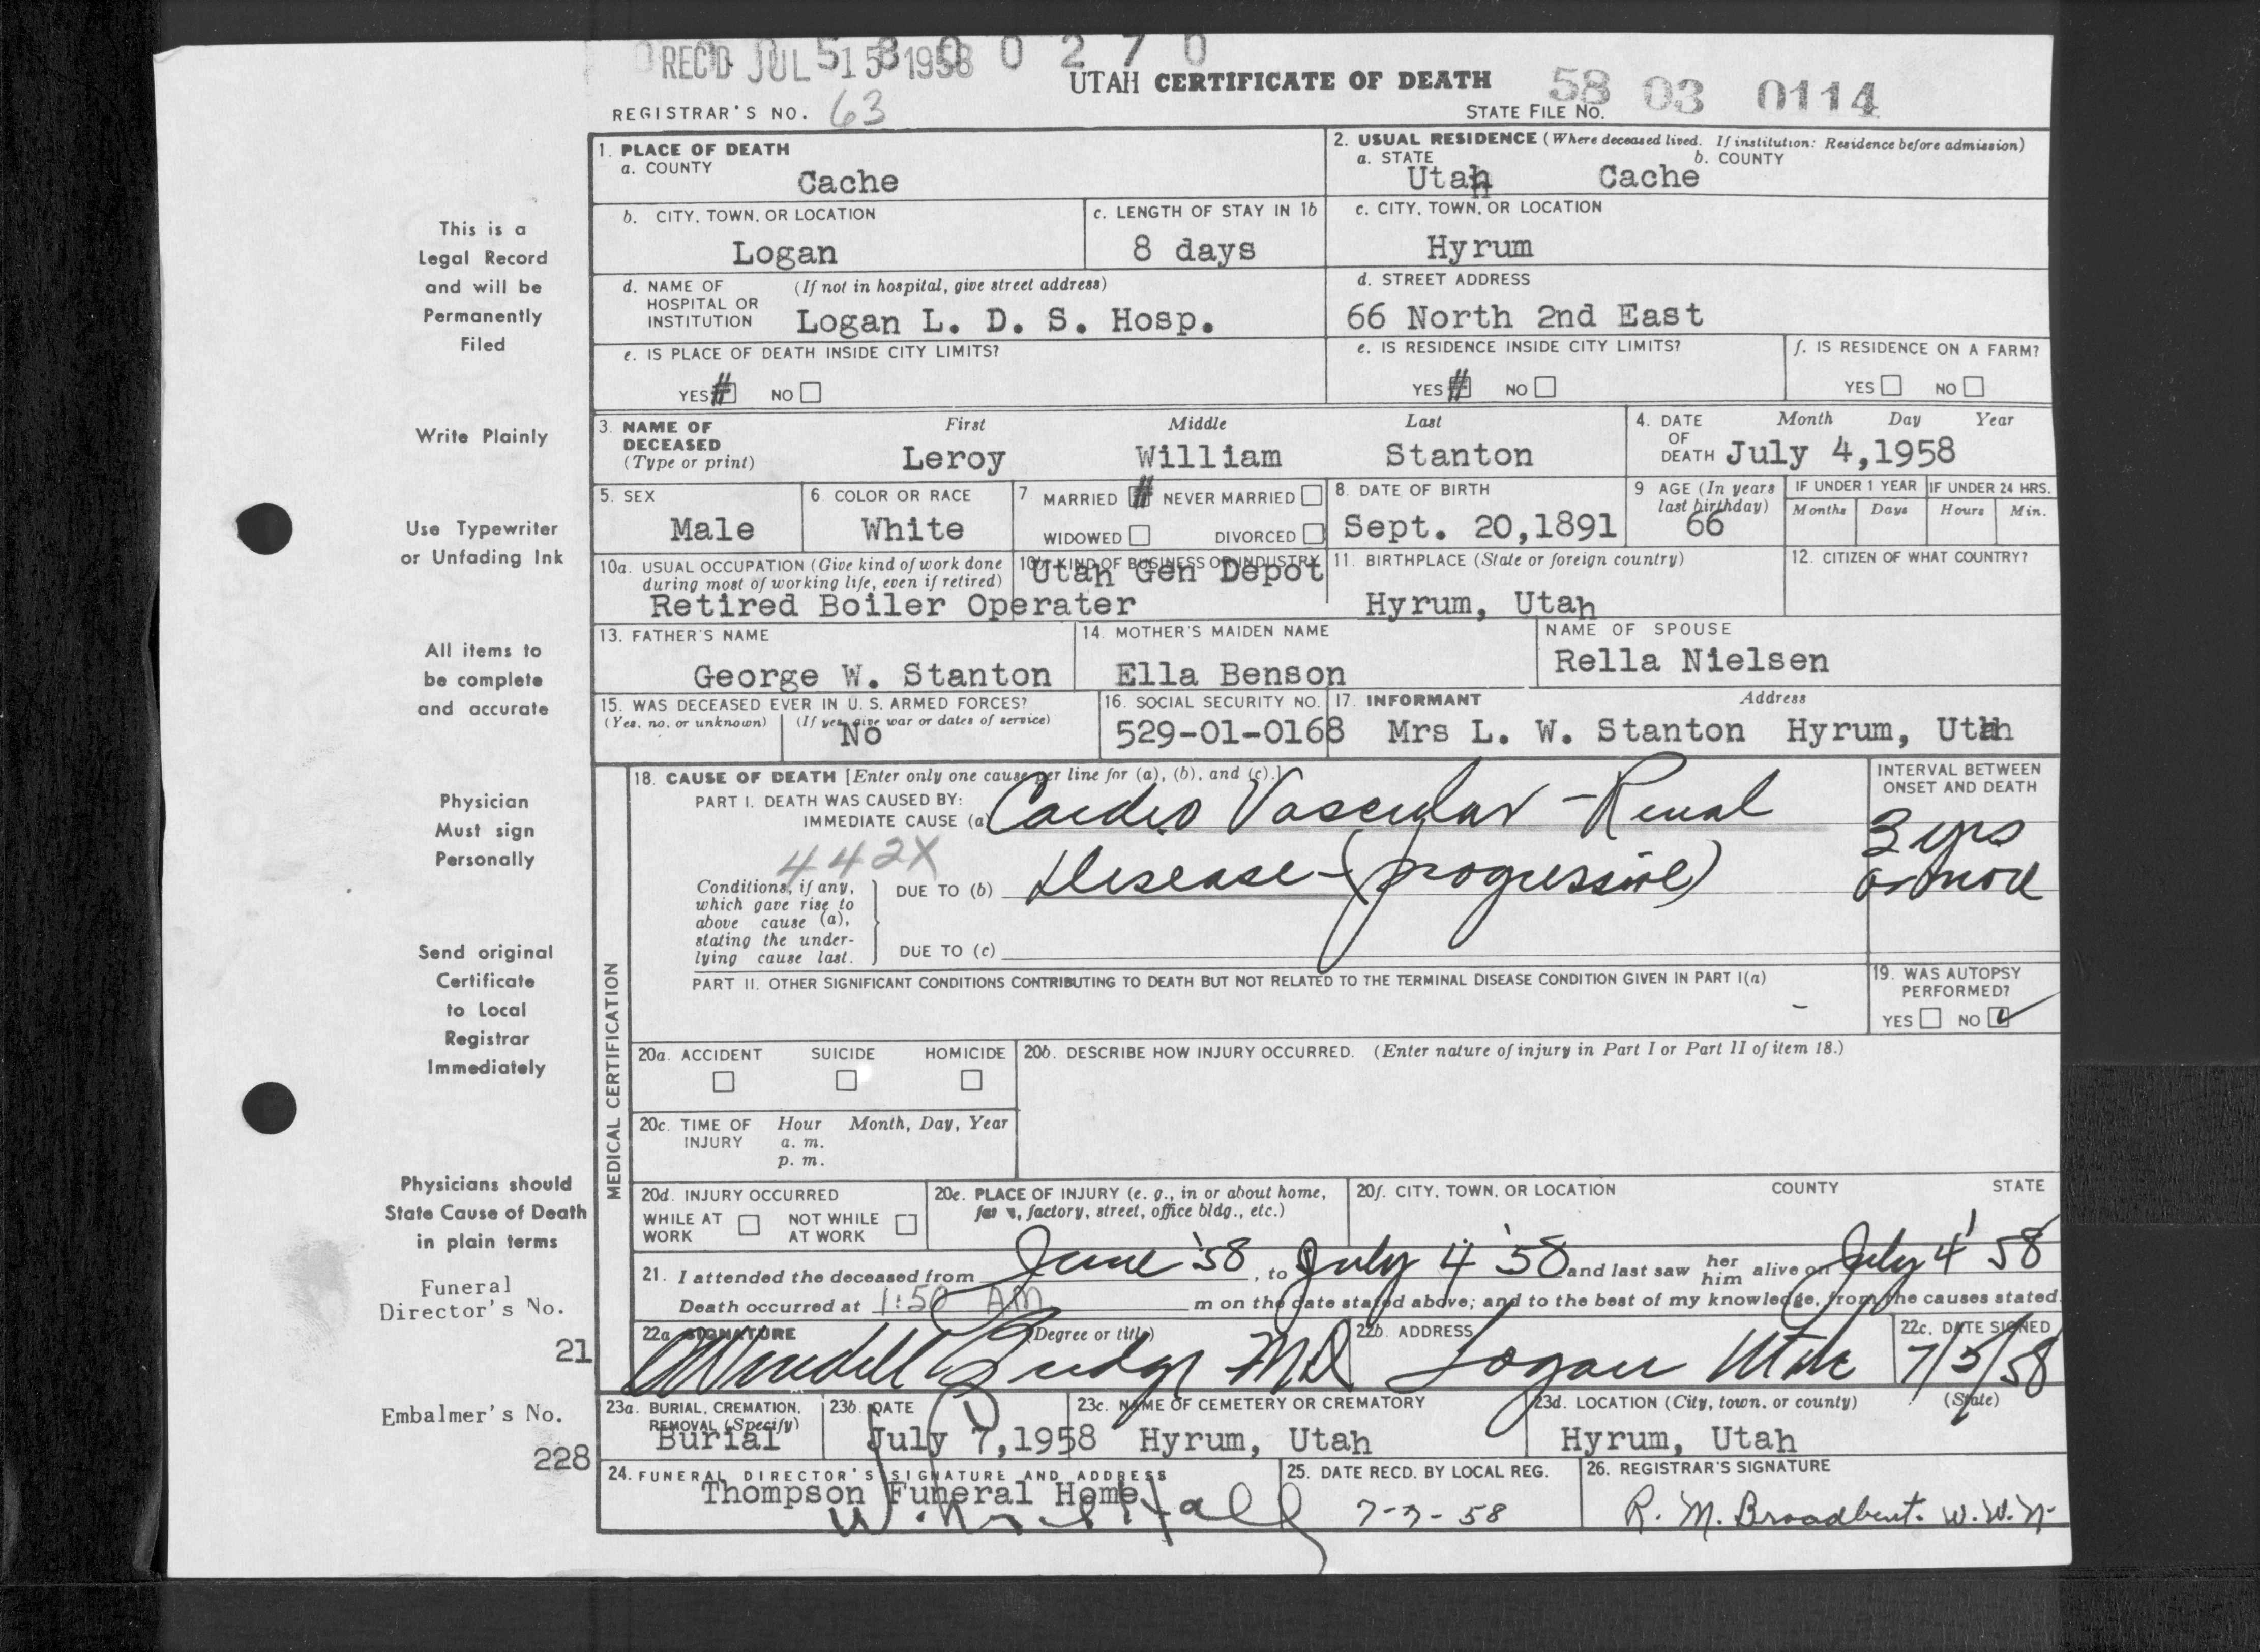 REC'D JUL 15 1958
0 0 5 8 0 0 2 7 0
UTAH CERTIFICATE OF DEATH
REGISTRAR'S NO. 63
STATE FILE NO. 58 03 0114
1. PLACE OF DEATH
a. COUNTY
Cache
2. USUAL RESIDENCE (Where deceased lived. If institution: Residence before admission)
a. STATE b. COUNTY
Utah Cache
b. CITY, TOWN, OR LOCATION
Logan
c. LENGTH OF STAY IN 1b
8 days
c. CITY, TOWN, OR LOCATION
Hyrum
d. NAME OF (If not in hospital, give street address)
HOSPITAL OR
INSTITUTION Logan L. D. S. Hosp.
d. STREET ADDRESS
66 North 2nd East
e. IS PLACE OF DEATH INSIDE CITY LIMITS?
YES NO
e. IS RESIDENCE INSIDE CITY LIMITS?
YES NO
f. IS RESIDENCE ON A FARM?
YES NO
3. NAME OF DECEASED (Type or print)
First Middle Last
Leroy William Stanton
4. DATE OF DEATH
Month Day Year
July 4,1958
5. SEX
Male
6. COLOR OR RACE
White
7. MARRIED # NEVER MARRIED
WIDOWED DIVORCED
8. DATE OF BIRTH
Sept. 20,1891
9 AGE (In years last birthday)
66
IF UNDER 1 YEAR
Months Days
IF UNDER 24 HRS.
Hours Min.
10a. USUAL OCCUPATION (Give kind of work done
during most of working life, even if retired)
Retired Boiler Operater
10b. KIND OF BUSINESS OR INDUSTRY
Utah Gen Depot
11. BIRTHPLACE (State or foreign country)
Hyrum, Utah
12. CITIZEN OF WHAT COUNTRY?
13. FATHER'S NAME
George W. Stanton
14. MOTHER'S MAIDEN NAME
Ella Benson
NAME OF SPOUSE
Rella Nielsen
15. WAS DECEASED EVER IN U. S. ARMED FORCES?
(Yes, no, or unknown) (If yes, give war or dates of service)
No
16. SOCIAL SECURITY NO.
529-01-0168
17. INFORMANT Address
Mrs L. W. Stanton Hyrum, Utah
MEDICAL CERTIFICATION
18. CAUSE OF DEATH [Enter only one cause per line for (a), (b), and (c).]
PART I. DEATH WAS CAUSED BY:
IMMEDIATE CAUSE (a) Cardio Vascular - Renal
442X
Conditions, if any,
which gave rise to
above cause (a),
stating the under-
lying cause last.
DUE TO (b) Disease - (progressive)
DUE TO (c)
INTERVAL BETWEEN
ONSET AND DEATH
3 yrs
or more
PART II. OTHER SIGNIFICANT CONDITIONS CONTRIBUTING TO DEATH BUT NOT RELATED TO THE TERMINAL DISEASE CONDITION GIVEN IN PART I(a)
19. WAS AUTOPSY
PERFORMED?
YES NO
20a. ACCIDENT SUICIDE HOMICIDE
20b. DESCRIBE HOW INJURY OCCURRED. (Enter nature of injury in Part I or Part II of item 18.)
20c. TIME OF INJURY
Hour Month, Day, Year
a. m.
p. m.
20d. INJURY OCCURRED
WHILE AT WORK NOT WHILE AT WORK
20e. PLACE OF INJURY (e. g., in or about home,
farm, factory, street, office bldg., etc.)
20f. CITY, TOWN, OR LOCATION COUNTY STATE
21. I attended the deceased from June '58, to July 4 '58 and last saw her him alive on July 4 '58
Death occurred at 1:50 AM m on the date stated above; and to the best of my knowledge, from the causes stated.
22a. SIGNATURE (Degree or title)
Wendell Budge MD
22b. ADDRESS
Logan Utah
22c. DATE SIGNED
7/5/58
23a. BURIAL, CREMATION,
REMOVAL (Specify)
Burial
23b. DATE
July 7,1958
23c. NAME OF CEMETERY OR CREMATORY
Hyrum, Utah
23d. LOCATION (City, town, or county) (State)
Hyrum, Utah
24. FUNERAL DIRECTOR'S SIGNATURE AND ADDRESS
Thompson Funeral Home
Hall
25. DATE RECD. BY LOCAL REG.
7-7-58
26. REGISTRAR'S SIGNATURE
R. M. Broadbent. W.W.N.
This is a
Legal Record
and will be
Permanently
Filed
Write Plainly
Use Typewriter
or Unfading Ink
All items to
be complete
and accurate
Physician
Must sign
Personally
Send original
Certificate
to Local
Registrar
Immediately
Physicians should
State Cause of Death
in plain terms
Funeral
Director's No.
21
Embalmer's No.
228